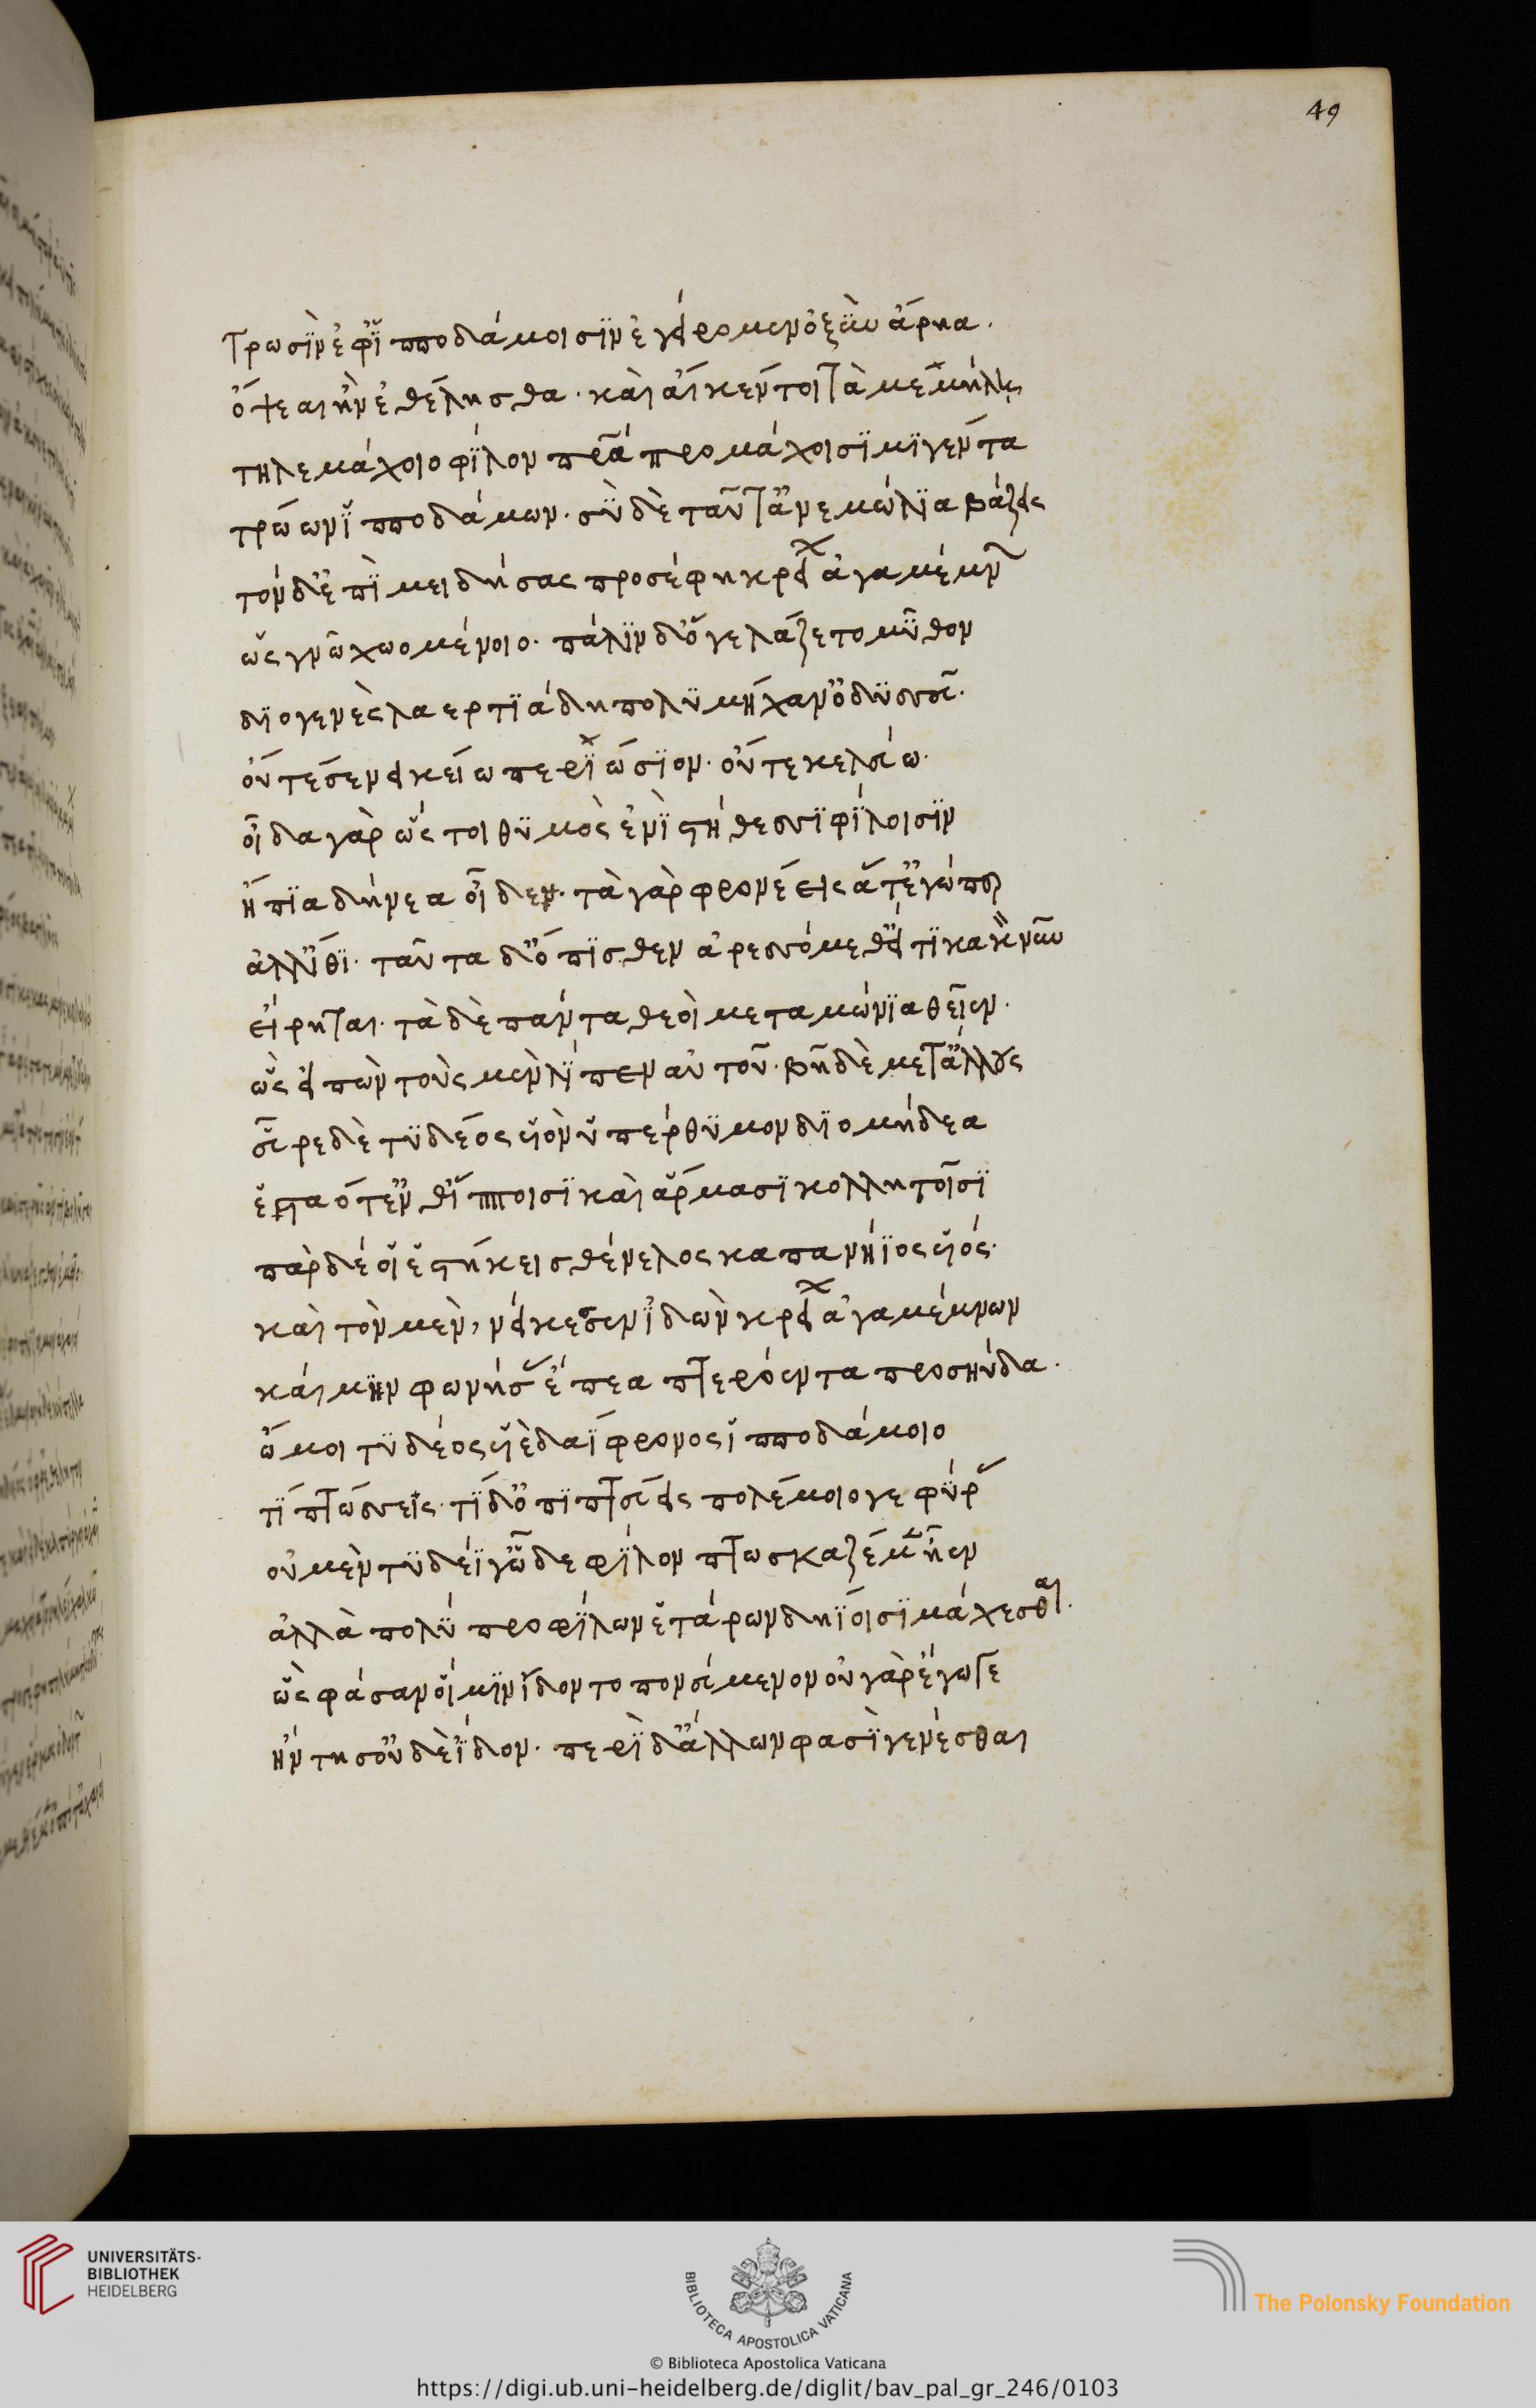 49
Τρωσὶν ἐφ' ἱπποδάμοισιν ἐγείρομεν ὀξὺν ἄρηα.
ὄψεαι ἢν ἐθέλησθα. καὶ αἴκέν τοι τὰ μεμήλῃ
τηλεμάχοιο φίλον πρα προμάχοισι μιγέντα
τρώων ἱπποδάμων. σὺ δὲ ταῦτ' ἀνεμώλια βάζεις
τὸν δ' ἐπιμειδήσας προσέφη κρείων ἀγαμέμνων
ὡς γνῶ χωομένοιο. πάλιν δ' ὅγε λάζετο μῦθον
διογενὲς λαερτιάδη πολυμήχαν' ὀδυσσεῦ.
οὔτέ σε νεικείω περιώσιον. οὔτε κελεύω.
οἶδα γὰρ ὥς τοι θυμὸς ἐνὶ στήθεσσι φίλοισιν
ἤπια δήνεα οἶδεν. τὰ γὰρ φρονέεις ἅτ' ἐγώ περ
ἀλλ' ἴθι. ταῦτα δ' ὄπισθεν ἀρεσσόμεθ' εἴ τι κακὸν νῦν
εἴρηται. τὰ δὲ πάντα θεοὶ μεταμώνια θεῖεν.
ὣς εἰπὼν τοὺς μὲν λίπεν αὐτοῦ. βῆ δὲ μετ' ἄλλους
εὗρε δὲ τυδέος υἱὸν ὑπέρθυμον διομήδεα
ἑσταότ' ἔν θ' ἵπποισι καὶ ἅρμασι κολλητοῖσι
πὰρ δέ οἱ ἑστήκει σθένελος καπανήϊος υἱός.
καὶ τὸν μὲν, νείκεσεν ἰδὼν κρείων ἀγαμέμνων
καί μιν φωνήσας ἔπεα πτερόεντα προσηύδα.
ὤμοι τυδέος υἱὲ δαΐφρονος ἱπποδάμοιο
τί πτώσσεις. τί δ' ὀπιπτεύεις πολέμοιο γεφύρας
οὐ μὲν τυδέϊ γ' ὧδε φίλον πτωσκαζέμεν ἦεν
ἀλλὰ πολὺ προφίλων ἑτάρων δηΐοισι μάχεσθαι.
ὣς φάσαν οἵ μιν ἴδοντο πονεύμενον οὐ γὰρ ἔγωγε
ἤντησ' οὐδὲ ἴδον. περὶ δ' ἄλλων φασὶ γενέσθαι
UNIVERSITÄTS-
BIBLIOTHEK
HEIDELBERG
BIBLIOTECA APOSTOLICA VATICANA
The Polonsky Foundation
© Biblioteca Apostolica Vaticana
https://digi.ub.uni-heidelberg.de/diglit/bav_pal_gr_246/0103